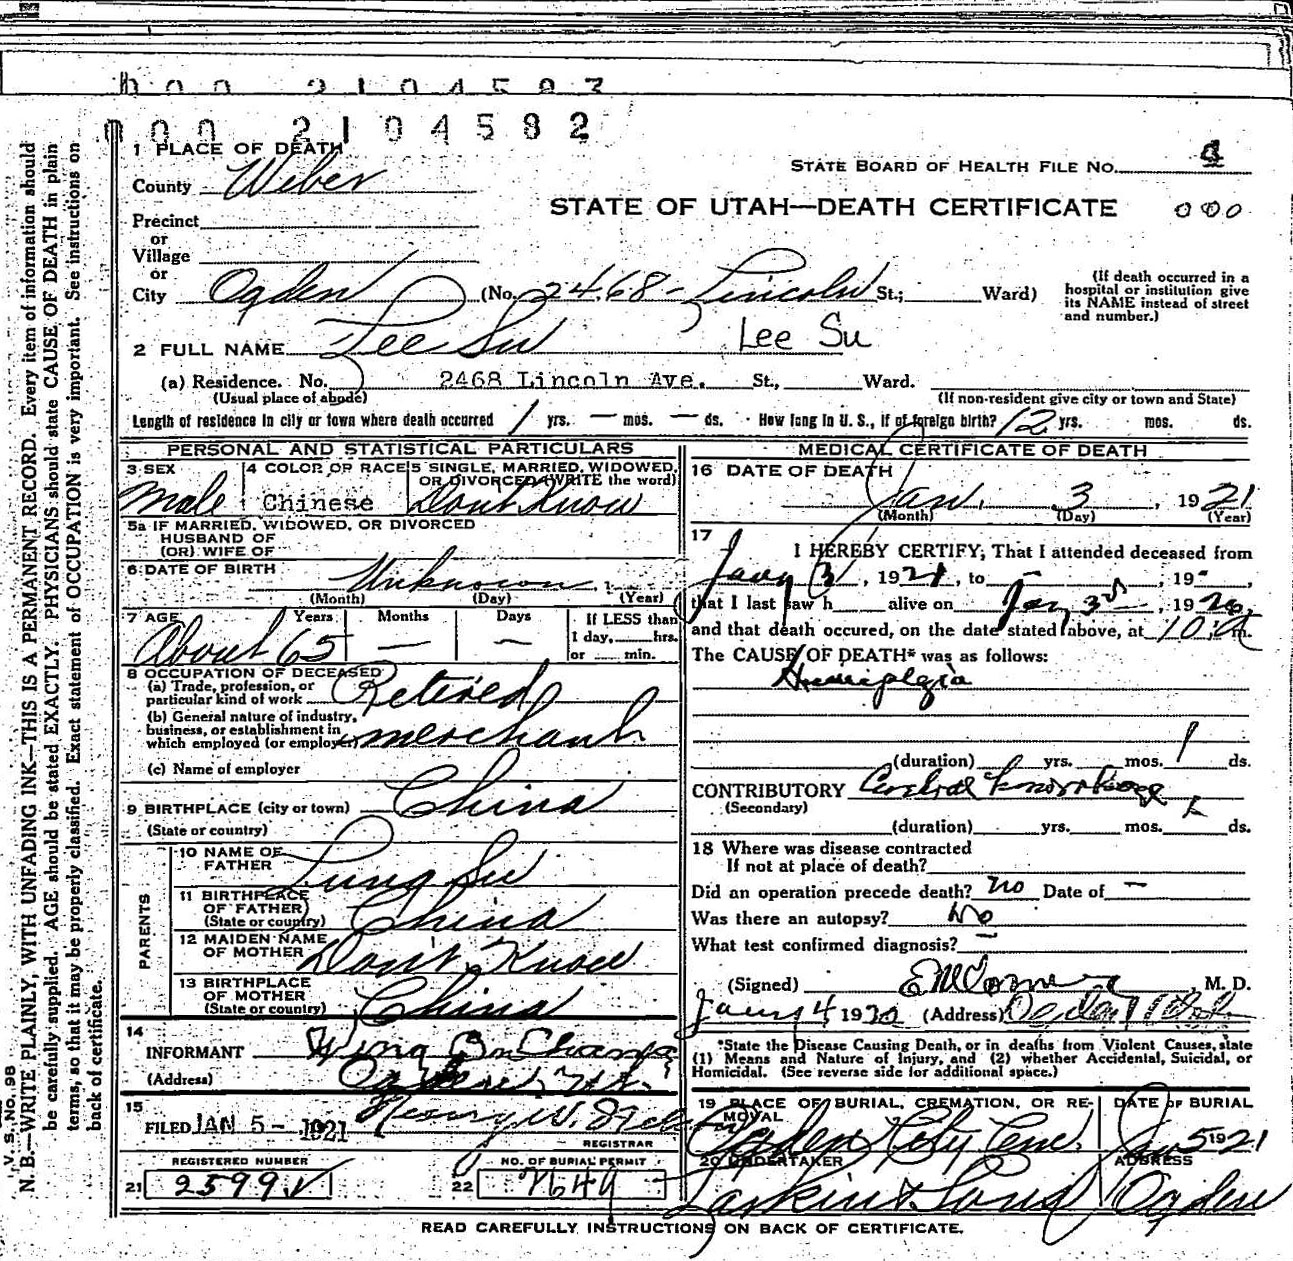 000 2104583
000 2104582
1 PLACE OF DEATH
County Weber
STATE BOARD OF HEALTH FILE NO. 4
STATE OF UTAH—DEATH CERTIFICATE 000
Precinct
or
Village
or
City Ogden (No. 2468 - Lincoln St.; Ward)
(If death occurred in a hospital or institution give its NAME instead of street and number.)
2 FULL NAME Lee Su Lee Su
(a) Residence. No. 2468 Lincoln Ave. St., Ward.
(Usual place of abode) (If non-resident give city or town and State)
Length of residence in city or town where death occurred 1 yrs. — mos. — ds. How long in U. S., if of foreign birth? 12 yrs. mos. ds.
PERSONAL AND STATISTICAL PARTICULARS
3 SEX 4 COLOR OR RACE 5 SINGLE, MARRIED, WIDOWED, OR DIVORCED (WRITE the word)
Male Chinese Dont Know
5a IF MARRIED, WIDOWED, OR DIVORCED
HUSBAND OF
(OR) WIFE OF
6 DATE OF BIRTH Unknown, 1
(Month) (Day) (Year)
7 AGE Years Months Days If LESS than
1 day, hrs.
or min.
About 65 — —
8 OCCUPATION OF DECEASED
(a) Trade, profession, or
particular kind of work Retired
(b) General nature of industry,
business, or establishment in
which employed (or employer) merchant
(c) Name of employer
9 BIRTHPLACE (city or town) China
(State or country)
PARENTS
10 NAME OF
FATHER Lung Su
11 BIRTHPLACE
OF FATHER
(State or country) China
12 MAIDEN NAME
OF MOTHER Don't Know
13 BIRTHPLACE
OF MOTHER
(State or country) China
14
INFORMANT Wing
(Address) Ogden
15
FILED JAN 5 - 1921 Henry W.
REGISTRAR
REGISTERED NUMBER NO. OF BURIAL PERMIT
21 2599 ✓ 22 7649
MEDICAL CERTIFICATE OF DEATH
16 DATE OF DEATH
Jan. 3, 1921
(Month) (Day) (Year)
17
I HEREBY CERTIFY, That I attended deceased from
Jany 3, 1921, to —, 19-,
that I last saw h alive on Jan 3rd, 1920,
and that death occured, on the date stated above, at 10 a m.
The CAUSE OF DEATH* was as follows:
Hemiplegia
(duration) yrs. mos. 1 ds.
CONTRIBUTORY Cerebral
(Secondary)
(duration) yrs. mos. ds.
18 Where was disease contracted
If not at place of death?
Did an operation precede death? no Date of —
Was there an autopsy? No
What test confirmed diagnosis? —
(Signed) M. D.
Jany 4 1920 (Address) Ogden Utah
*State the Disease Causing Death, or in deaths from Violent Causes, state
(1) Means and Nature of Injury, and (2) whether Accidental, Suicidal, or
Homicidal. (See reverse side for additional space.)
19 PLACE OF BURIAL, CREMATION, OR REMOVAL DATE OF BURIAL
Ogden City Cem. Jan 5 1921
20 UNDERTAKER ADDRESS
Larkin & Sons Ogden
READ CAREFULLY INSTRUCTIONS ON BACK OF CERTIFICATE.
V. S. NO. 98
N. B.—WRITE PLAINLY, WITH UNFADING INK—THIS IS A PERMANENT RECORD. Every item of information should
be carefully supplied. AGE should be stated EXACTLY. PHYSICIANS should state CAUSE OF DEATH in plain
terms, so that it may be properly classified. Exact statement of OCCUPATION is very important. See instructions on
back of certificate.